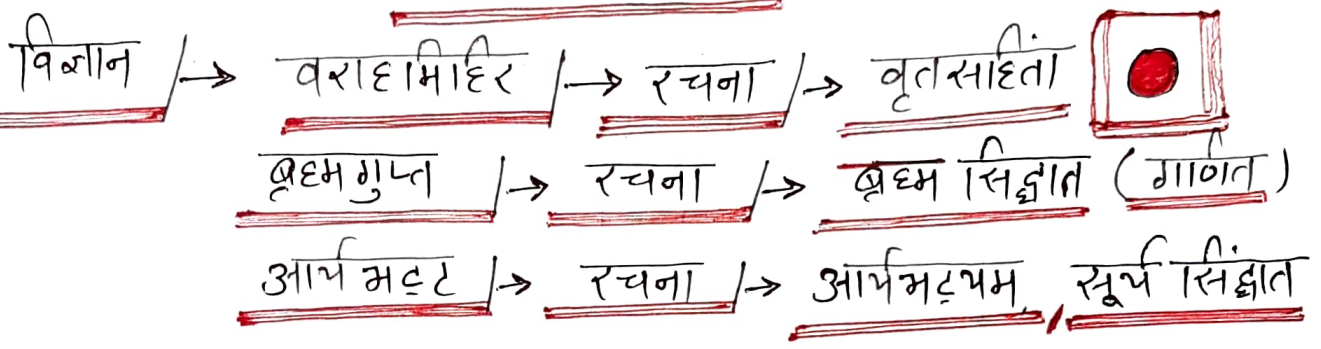 विज्ञान → वराहमिहिर → रचना → वृतसहिंता
ब्रहमगुप्त → रचना → ब्रहम सिद्धात (गणित)
आर्यभट्ट → रचना → आर्यभट्यम, सूर्य सिंद्धात